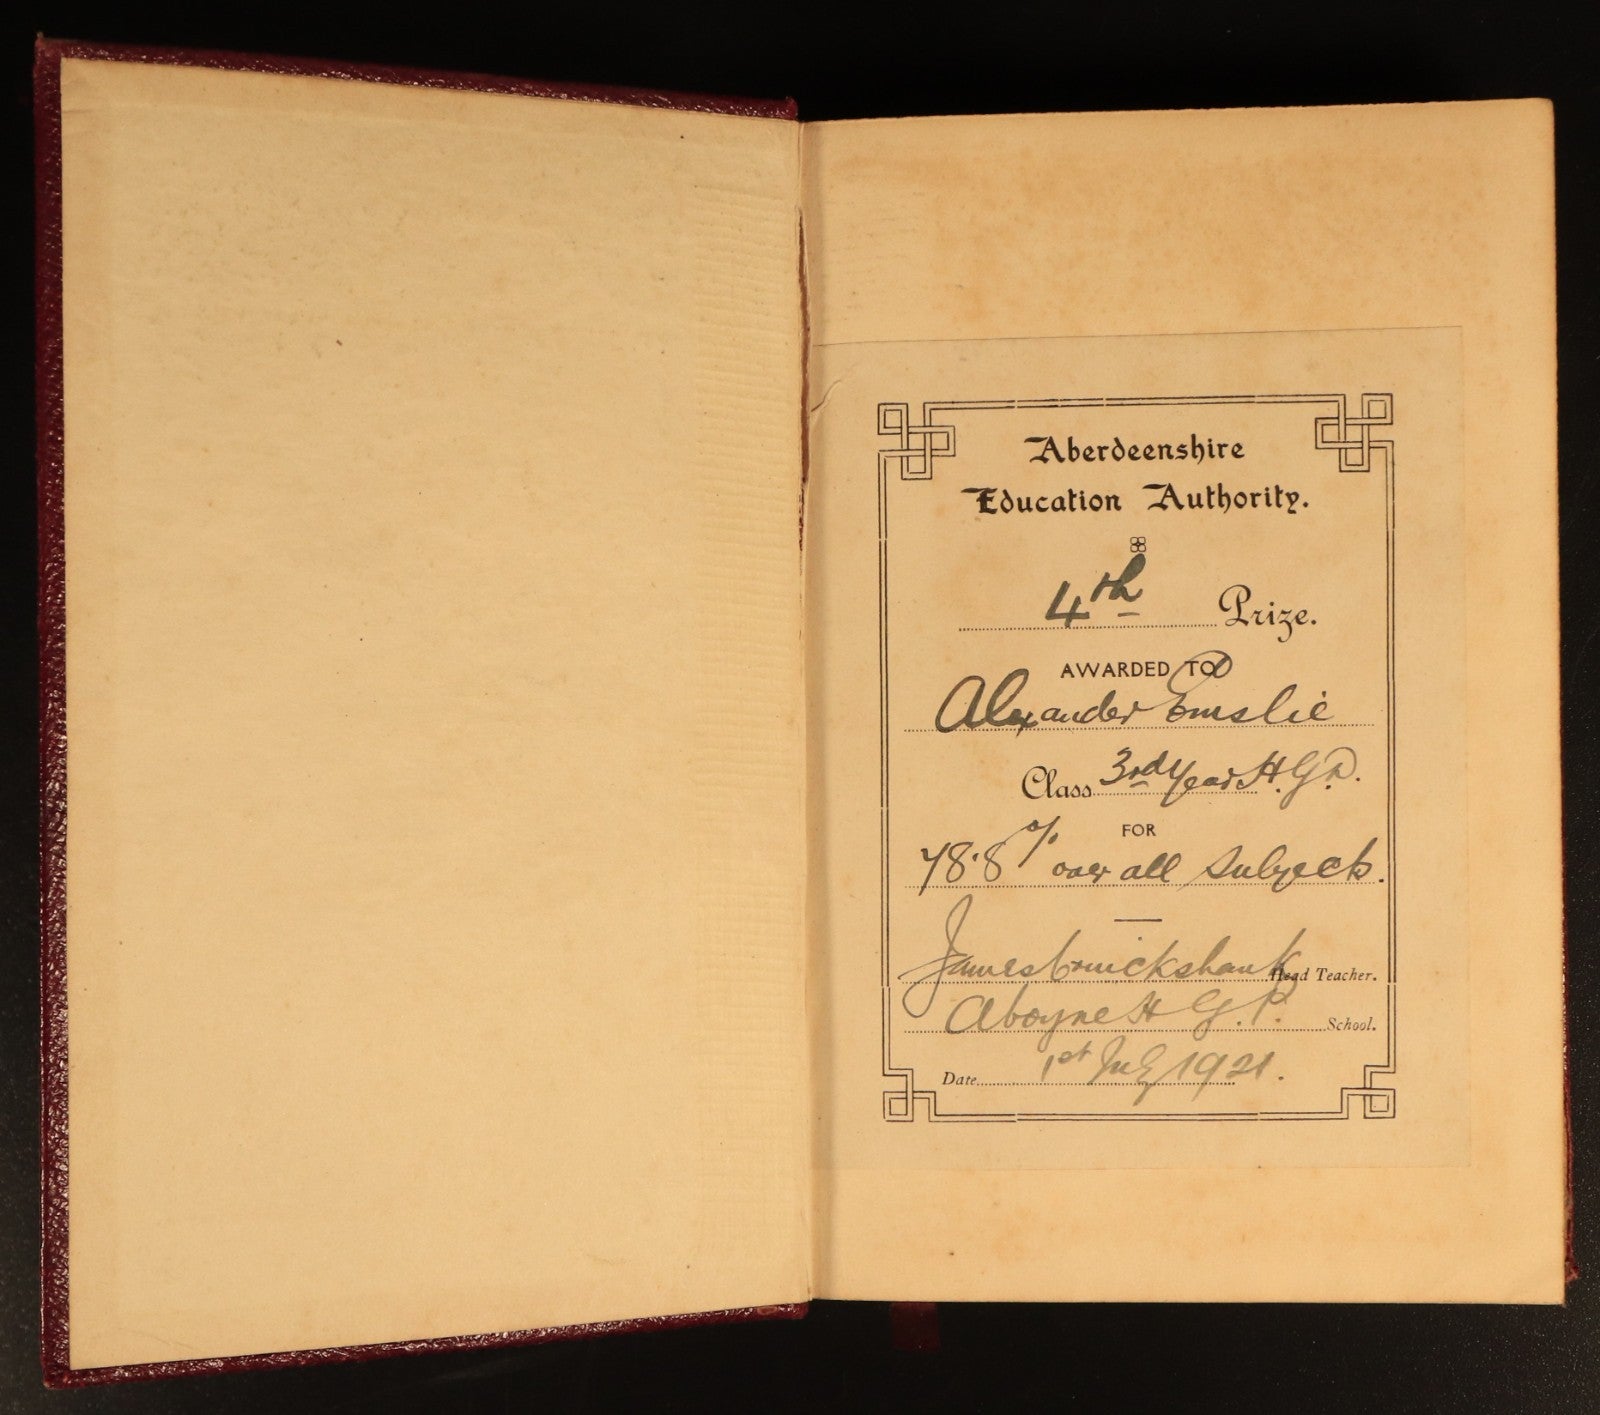 Aberdeenshire
Education Authority.
4th Prize.
AWARDED TO
Alexander Emslie
Class 3rd Year H.G.P.
FOR
78.8% over all subjects.
James Cruickshank Head Teacher.
Aboyne H.G.P. School.
Date 1st July 1921.